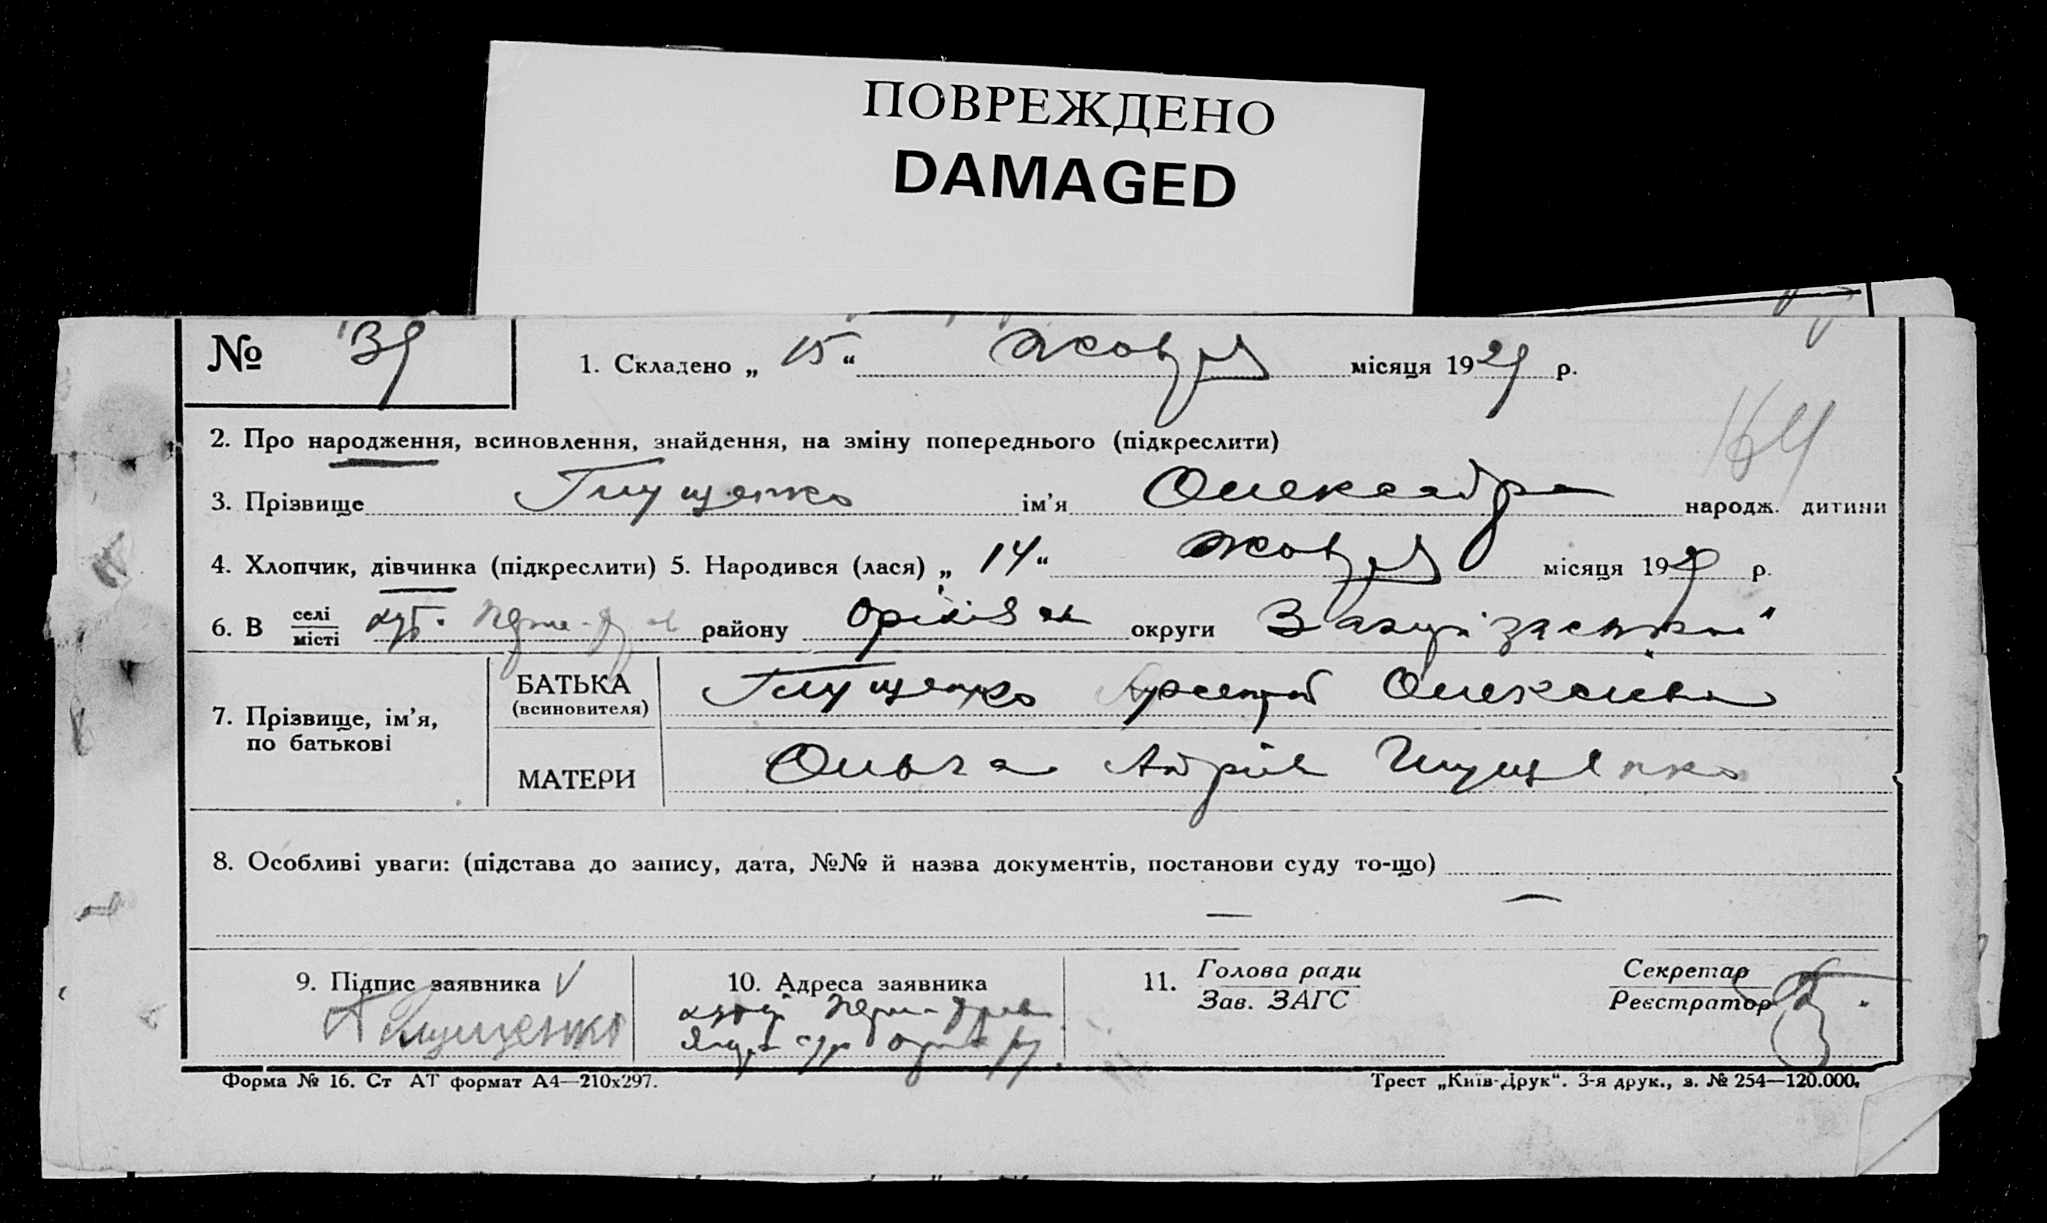 ПОВРЕЖДЕНО
DAMAGED
№ 39 1. Складено „ 15 “ Жовтня місяця 1929 р.
164
2. Про народження, всиновлення, знайдення, на зміну попереднього (підкреслити)
3. Прізвище Глущенко ім'я Олександра народж. дитини
4. Хлопчик, дівчинка (підкреслити) 5. Народився (лася) „ 14 “ Жовтня місяця 1929 р.
6. В селі місті хут. району Оріхівськ округи Запорізської
7. Прізвище, ім'я, по батькові
БАТЬКА (всиновителя) Глущенко Олексієв
МАТЕРИ Ольга Андріїв Глущенко
8. Особливі уваги: (підстава до запису, дата, №№ й назва документів, постанови суду то-що)
— —
9. Підпис заявника V
Глущенко
10. Адреса заявника
11. Голова ради
Зав. ЗАГС
Секретар
Реєстратор
Форма № 16. Ст АТ формат А4—210х297.
Трест „Київ-Друк“. 3-я друк., з. № 254—120.000.